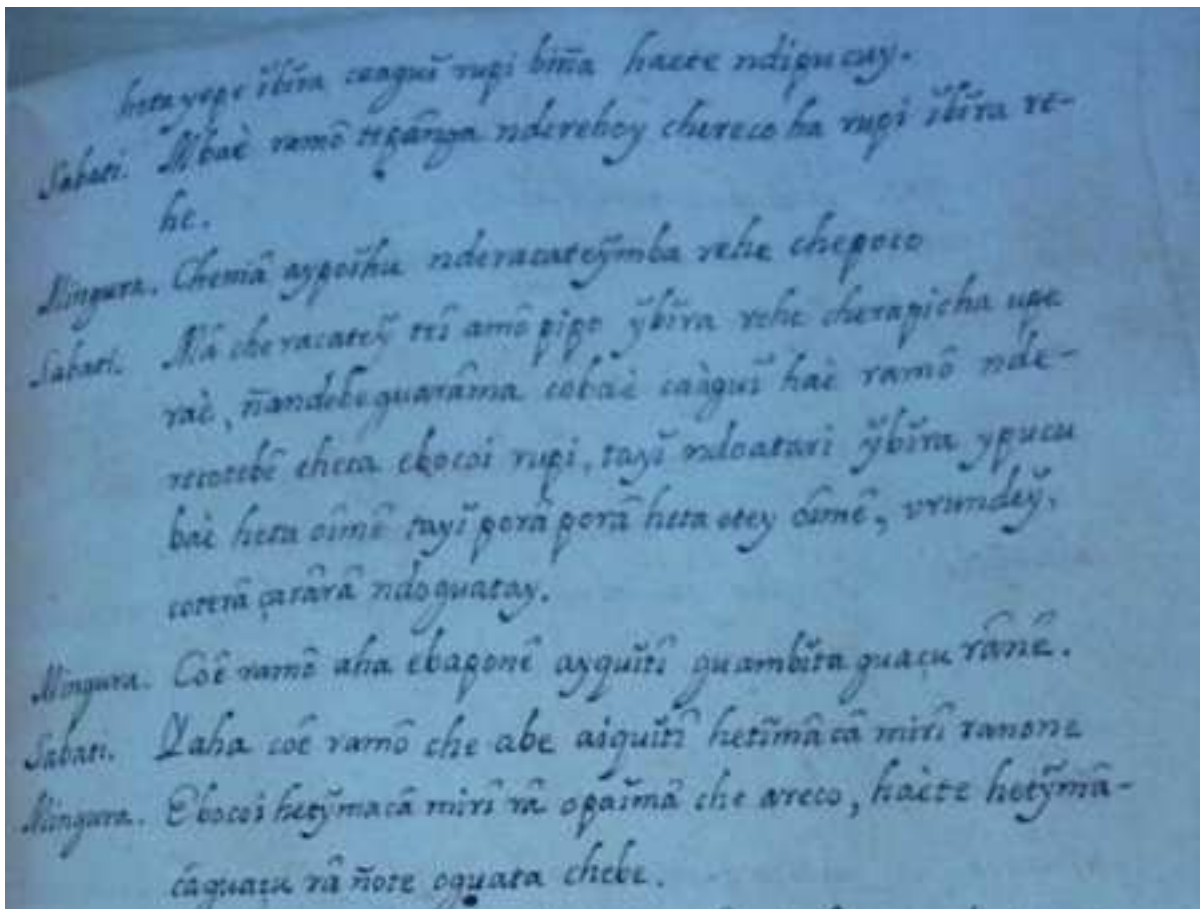 heta yepe ĭbĭra caaguĭ rupi biña haete ndipucuy.
Sabati. Mbaè ramô tepânga nderehoy chereco ha rupi ĭbĭra re-
he.
Mingura. Chemâ aypoĭhu nderacateỹmba rehe chepoco
Sabati. Mâ cheracateỹ teî amô pipo ỹbĭra rehe cherapicha upe
raè, ñandebeguarâma cobaè caàguĭ haè ramô nde-
recotebê cheta ebocoi rupi, tayĭ ndoatari ỹbĭra ypucu
baè heta oîmê tayĭ porâ porâ heta etey oîmê, vrundeỹ,
coterâ çarârâ ndoguatay.
Mingura. Coê ramô aha ebaponê ayquĭtî guambĭta guaçu rânê.
Sabati. Yaha coê ramô che abe aiquĭtî hetĭmâcâ mirî ranone
Mingura. Ebocoi hetỹmacâ mirî râ opaĭmâ che areco, haète hetỹmâ-
câguaçu râ ñote oguata chebe.